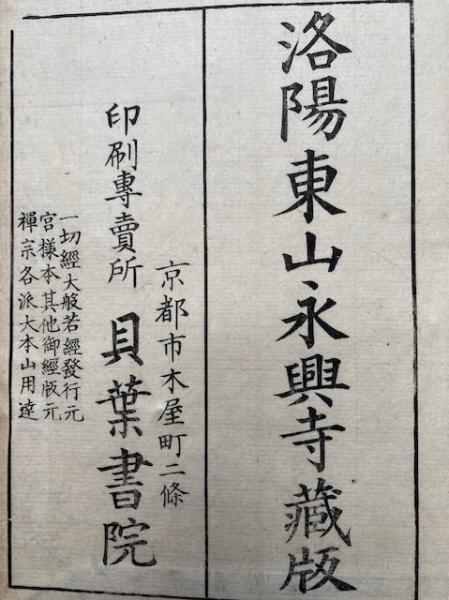 洛陽東山永興寺藏版
京都市木屋町二條
印刷專賣所 貝葉書院
一切經大般若經發行元
宮樣本其他御經版元
禪宗各派大本山用達